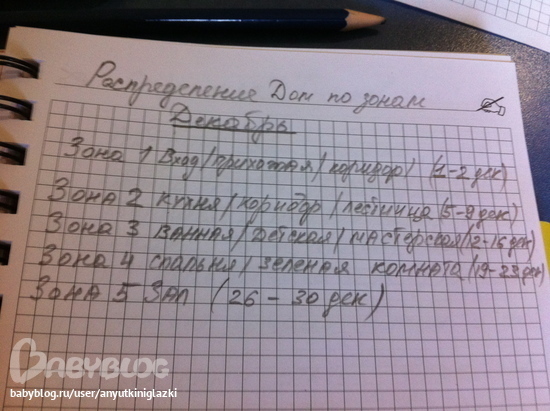 Распределение Дом по зонам
Декабрь
Зона 1 Вход/прихожая/коридор/ (1-2 дек)
Зона 2 Кухня/коридор/лестница (5-9 дек)
Зона 3 Ванная/Детская/мастерская (12-16 дек)
Зона 4 спальня/зеленая комната (19-23 дек)
Зона 5 Зал (26-30 дек)
BABYBLOG
babyblog.ru/user/anyutkiniglazki